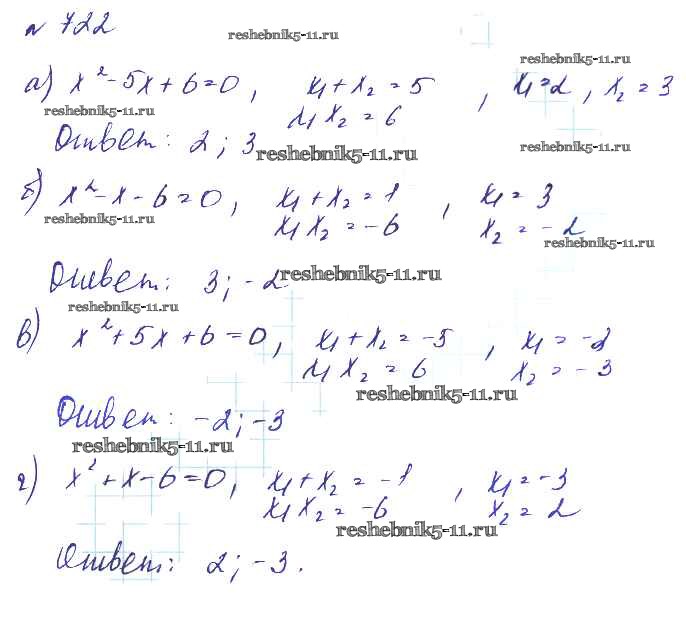 № 722
reshebnik5-11.ru
reshebnik5-11.ru
а) x² - 5x + 6 = 0, x₁ + x₂ = 5, x₁ = 2, x₂ = 3
reshebnik5-11.ru
x₁ x₂ = 6
Ответ: 2; 3
reshebnik5-11.ru
reshebnik5-11.ru
б) x² - x - 6 = 0, x₁ + x₂ = 1, x₁ = 3
reshebnik5-11.ru
x₁ x₂ = -6 x₂ = -2
reshebnik5-11.ru
Ответ: 3; -2
reshebnik5-11.ru
reshebnik5-11.ru
в) x² + 5x + 6 = 0, x₁ + x₂ = -5, x₁ = -2
x₁ x₂ = 6 x₂ = -3
reshebnik5-11.ru
Ответ: -2; -3
reshebnik5-11.ru
г) x² + x - 6 = 0, x₁ + x₂ = -1, x₁ = -3
x₁ x₂ = -6 x₂ = 2
reshebnik5-11.ru
Ответ: 2; -3.